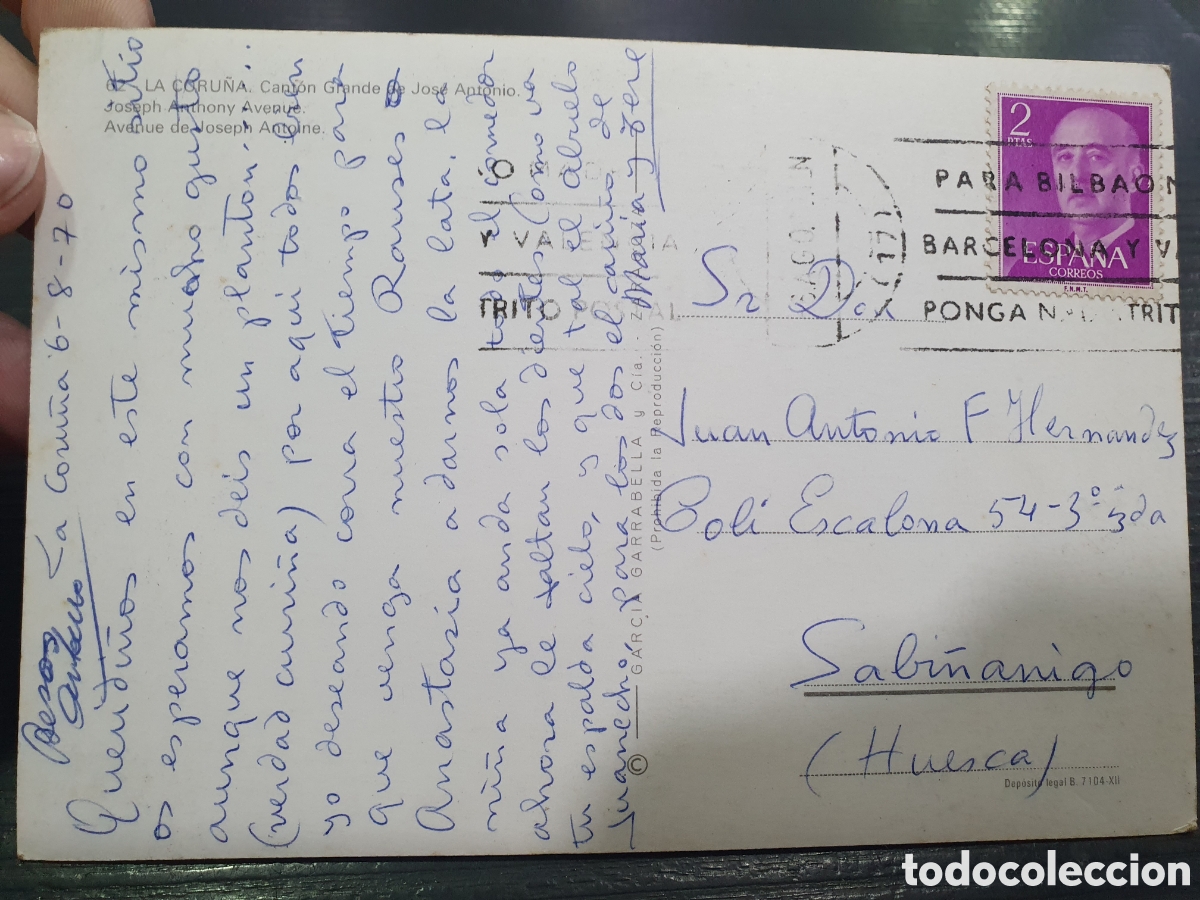 62 - LA CORUÑA. Cantón Grande de José Antonio.
Joseph Anthony Avenue.
Avenue de Joseph Antoine.
La Coruña 6-8-70
Queridiños en este mismo sitio
os esperamos con mucho gusto
aunque nos deis un plantón.....
(verdad curiña) por aqui todos bien
yo deseando corra el tiempo para
que venga nuestro Ramses o
Anastasia a darnos la lata. la
niña ya anda sola todo el comedor
ahora le faltan los dientes, como va
tu espalda cielo, y que tal el abuelo
Juanecho, para los dos el cariño de
Maria y Fere
Besos
© GARCIA GARRABELLA y Cía. - Z
(Prohibida la Reproducción)
2
PTAS
ESPAÑA
CORREOS
F.N.M.T.
O
Y VALENCIA
TRITO POSTAL
PARA BILBAO M
BARCELONA Y VA
PONGA N TRIT
Sr Don
Juan Antonio F Hernandez
Poli Escalona 54-3º izda
Sabiñanigo
(Huesca)
Depósito legal B. 7104-XII
todocoleccion